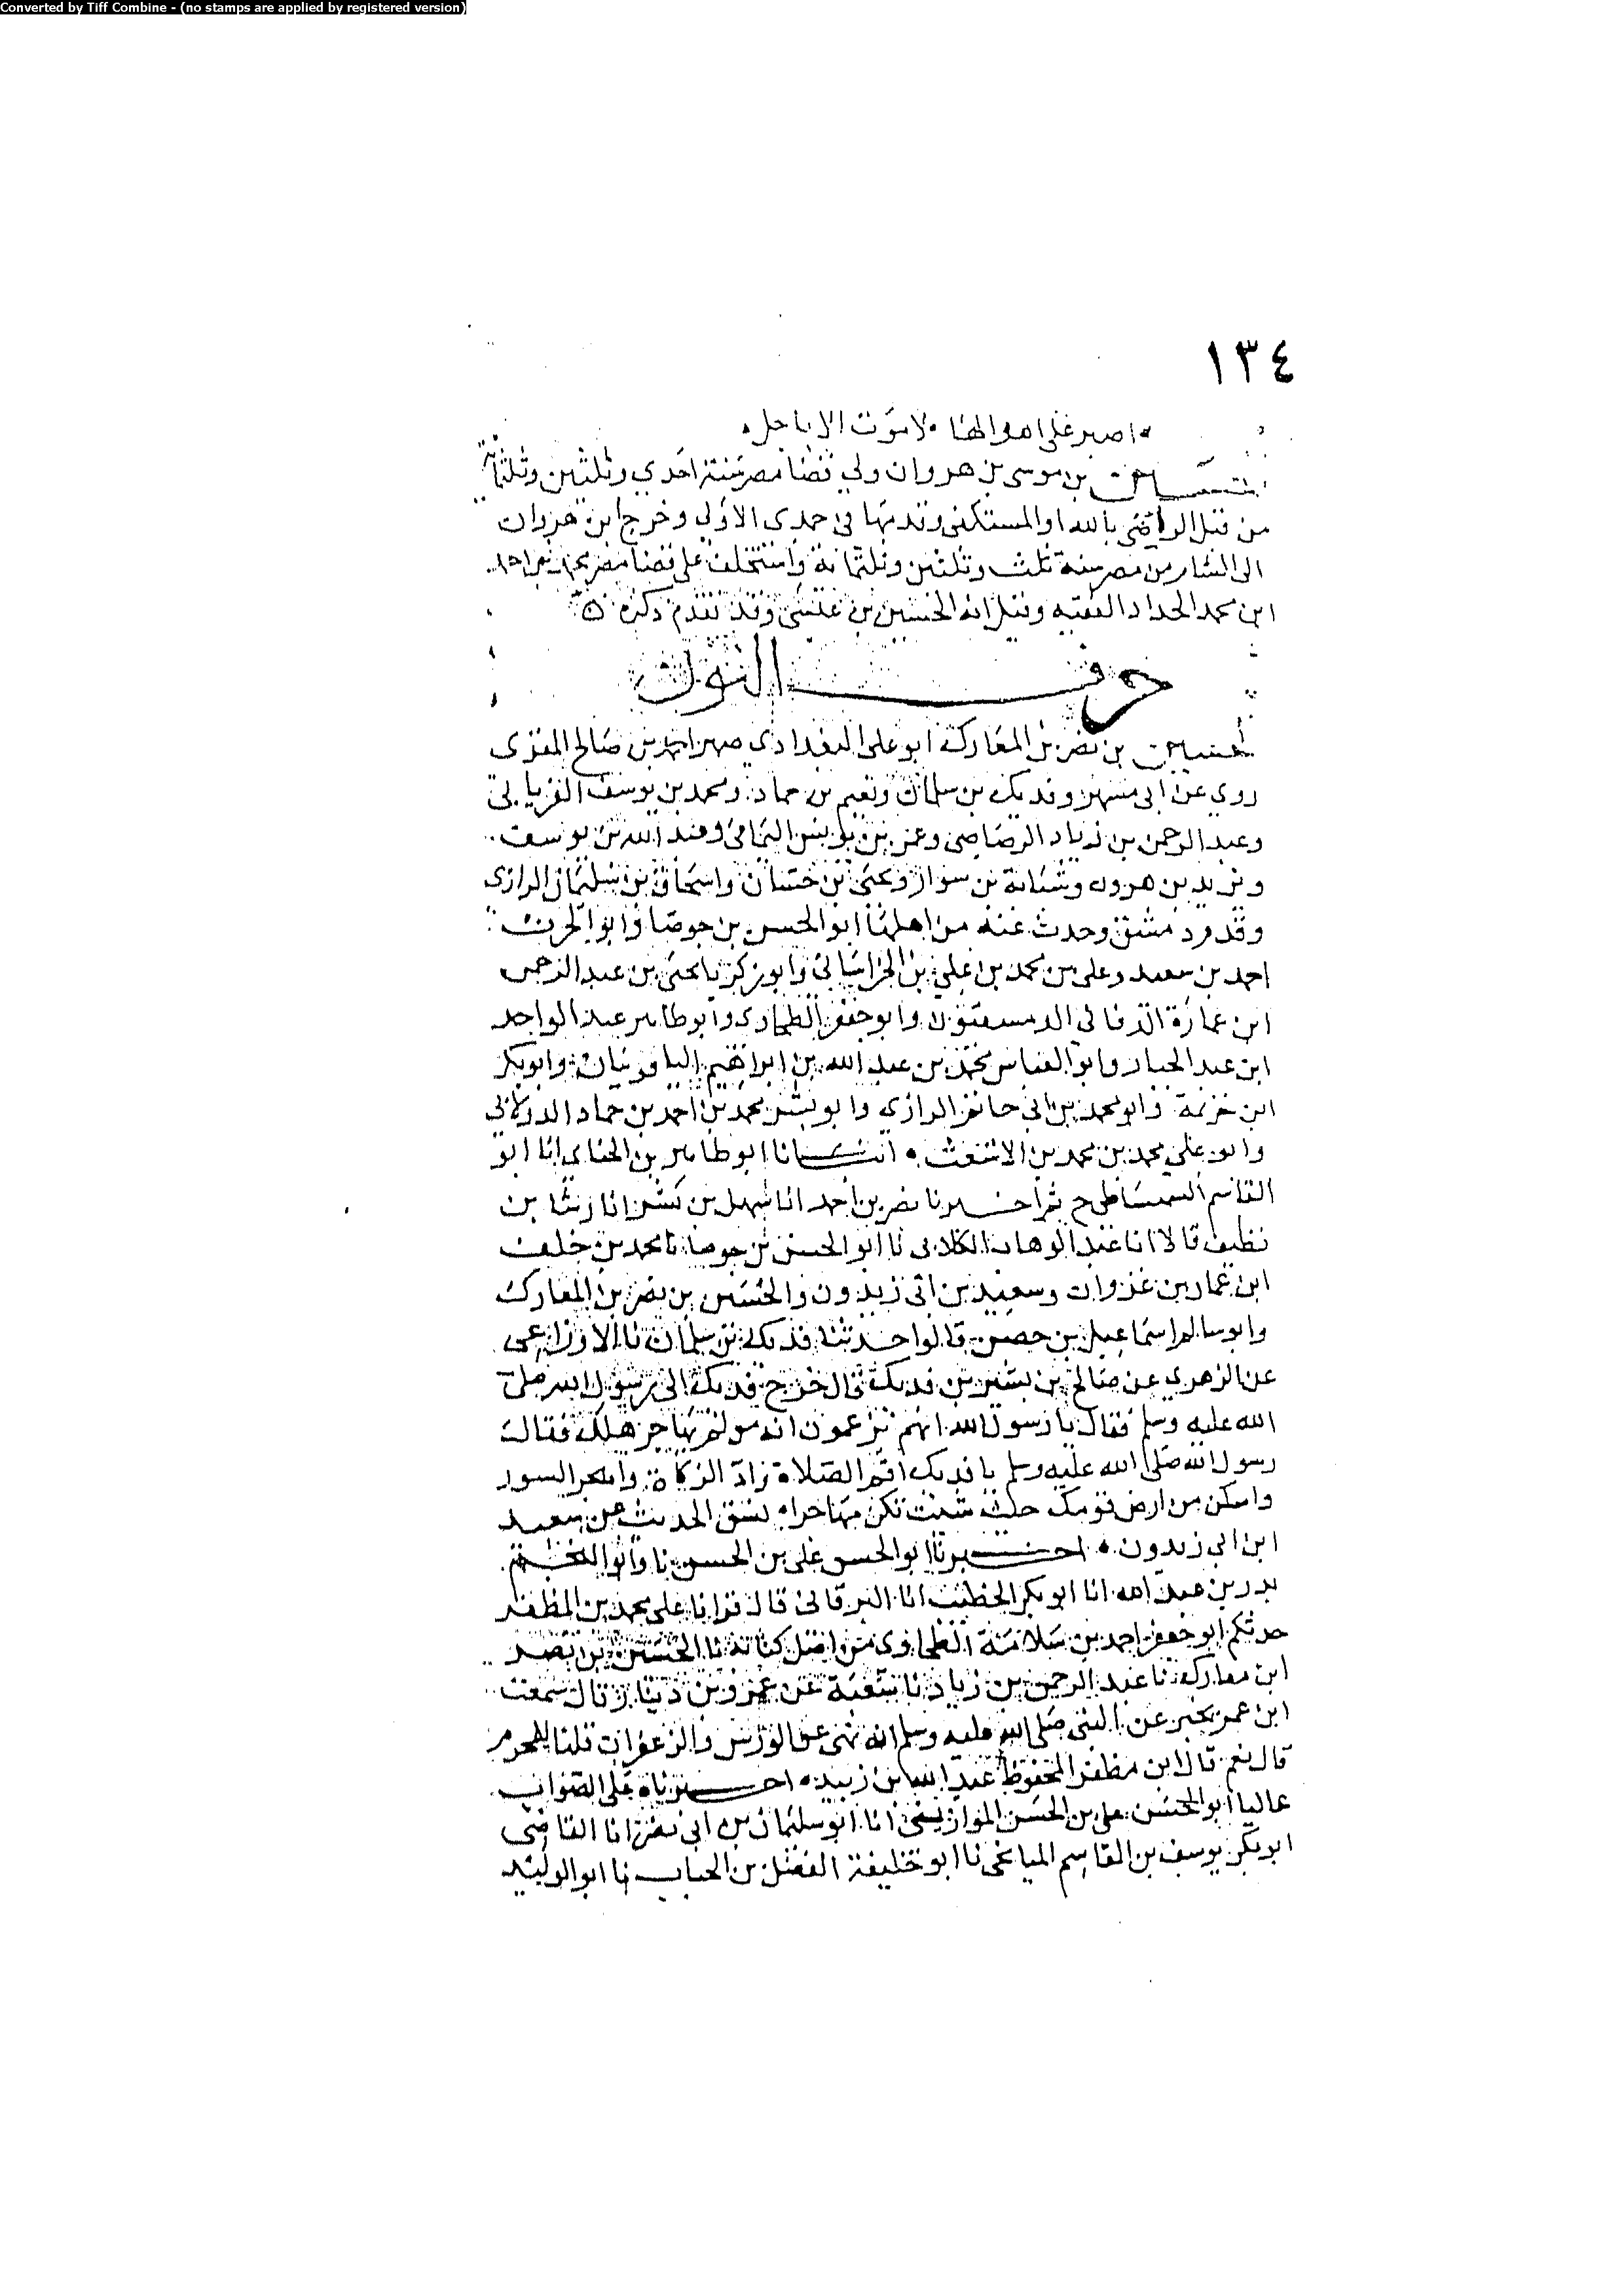 Converted by Tiff Combine - (no stamps are applied by registered version)
١٣٤
اصبر على اهوالها لا موت الا باجل
بن موسى بن هروان ولي قضا مصر سنة احدي وثلثين وثلثماية
من قبل الراضي بالله او المستكفي وقدمها في جمدى الاولي وخرج ابن هروان
الى الشام من مصر سنة ثلث وثلثين وثلثمانة واستخلف على قضا مصر
ابن محمد الحداد الفقيه وقيل انه الحسين بن عيسى وقد تقدم ذكره
حرف النون
الحسين بن نصر بن المعارك ابو على البغدادي صهر احمد بن صالح المقرى
روي عن ابى مسهر وفديك بن سلمان ونعيم بن حماد ومحمد بن يوسف الفريابي
وعبد الرحمن بن زياد الرصاصي وعمر بن يونس اليمامي وعبد الله بن يوسف
ويزيد بن هرون وشبابة بن سوار ويحيى بن حسان واسحاق بن سليمان الرازى
وقدم دمشق وحدث عنه من اهلها ابو الحسن بن جوصا وابو الحرث
احمد بن سعيد وعلى بن محمد بن علي بن الخراساني وابو زكريا يحيى بن عبد الرحمن
ابن عمارة الدمشقيون وابو جعفر الطحاوي وابو طاهر عبد الواحد
ابن عبد الجبار وابو العباس محمد بن عبد الله بن ابراهيم وابو بكر
ابن خزيمة وابو محمد بن ابي حاتم الرازي وابو بشر محمد بن احمد بن حماد الدولابي
وابو علي محمد بن محمد بن الاشعث انبانا ابو طاهر بن الحناي انا ابو
القاسم السميساطى ح ثم اخبرنا نصر بن احمد انا سهل بن بشر انا رشا بن
نظيف قالا انا عبد الوهاب الكلابي نا ابو الحسن بن جوصا نا محمد بن خلف
ابن عمار بن غزوان وسعيد بن ابى زيدون والحسين بن نصر بن المعارك
وابو سالم اسماعيل بن حصن قالوا حدثنا فديك بن سلمان نا الاوزاعى
عن الزهري عن صالح بن بشير بن فديك قال خرج فديك الى رسول الله صلى
الله عليه وسلم فقال يا رسول الله انهم يزعمون انه من لم يهاجر هلك فقال
رسول الله صلى الله عليه وسلم يا فديك اقم الصلاة واد الزكاة واهجر السور
واسكن من ارض قومك حيث شئت تكن مهاجرا الحديث عن سعيد
ابن ابي زيدون اخبرنا ابو الحسن على بن الحسن نا وابو النجم
بدر بن عبد الله انا ابو بكر الخطيب انا البرقاني قال قرانا على محمد بن المظفر
حدثكم ابو جعفر احمد بن سلامة الطحاوى من اصل كتابه نا الحسين بن نصر
ابن معارك نا عبد الرحمن بن زياد نا شعبة عن عمرو بن دينار قال سمعت
ابن عمر يخبر عن النبي صلى الله عليه وسلم انه نهى عن الورس والزعفران قلنا للمحرم
قال نعم قال ابن مظفر المحفوظ عبد الله بن اخبرناه على الصواب
عاليا ابو الحسن على بن الحسن الموازيني انا ابو سليمان بن ابي نصر انا القاضى
ابو بكر يوسف بن القاسم الميانجى نا ابو خليفة الفضل بن الحباب نا ابو الوليد